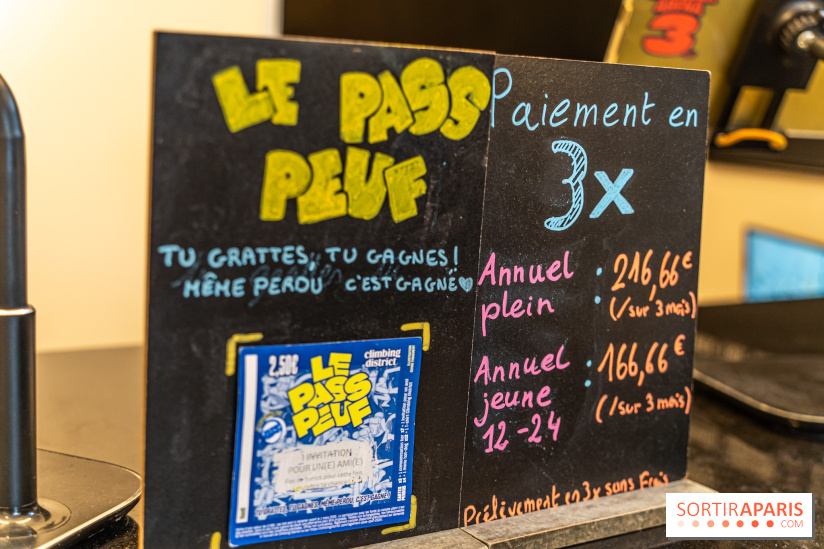 LE PASS
PEUF
TU GRATTES, TU GAGNES!
MÊME PERDU C'EST GAGNÉ
2,50€
climbing
district
LE
PASS
PEUF
1 INVITATION
POUR UN(E) AMI(E)
TU GRATTES, TU GAGNES, MÊME PERDU, C'EST GAGNÉ
3
Paiement en
3x
Annuel
plein : 216,66€
(/sur 3 mois)
Annuel
jeune
12-24 : 166,66€
(/sur 3 mois)
Prélèvement en 3x sans Frais
SORTIRAPARIS
.COM